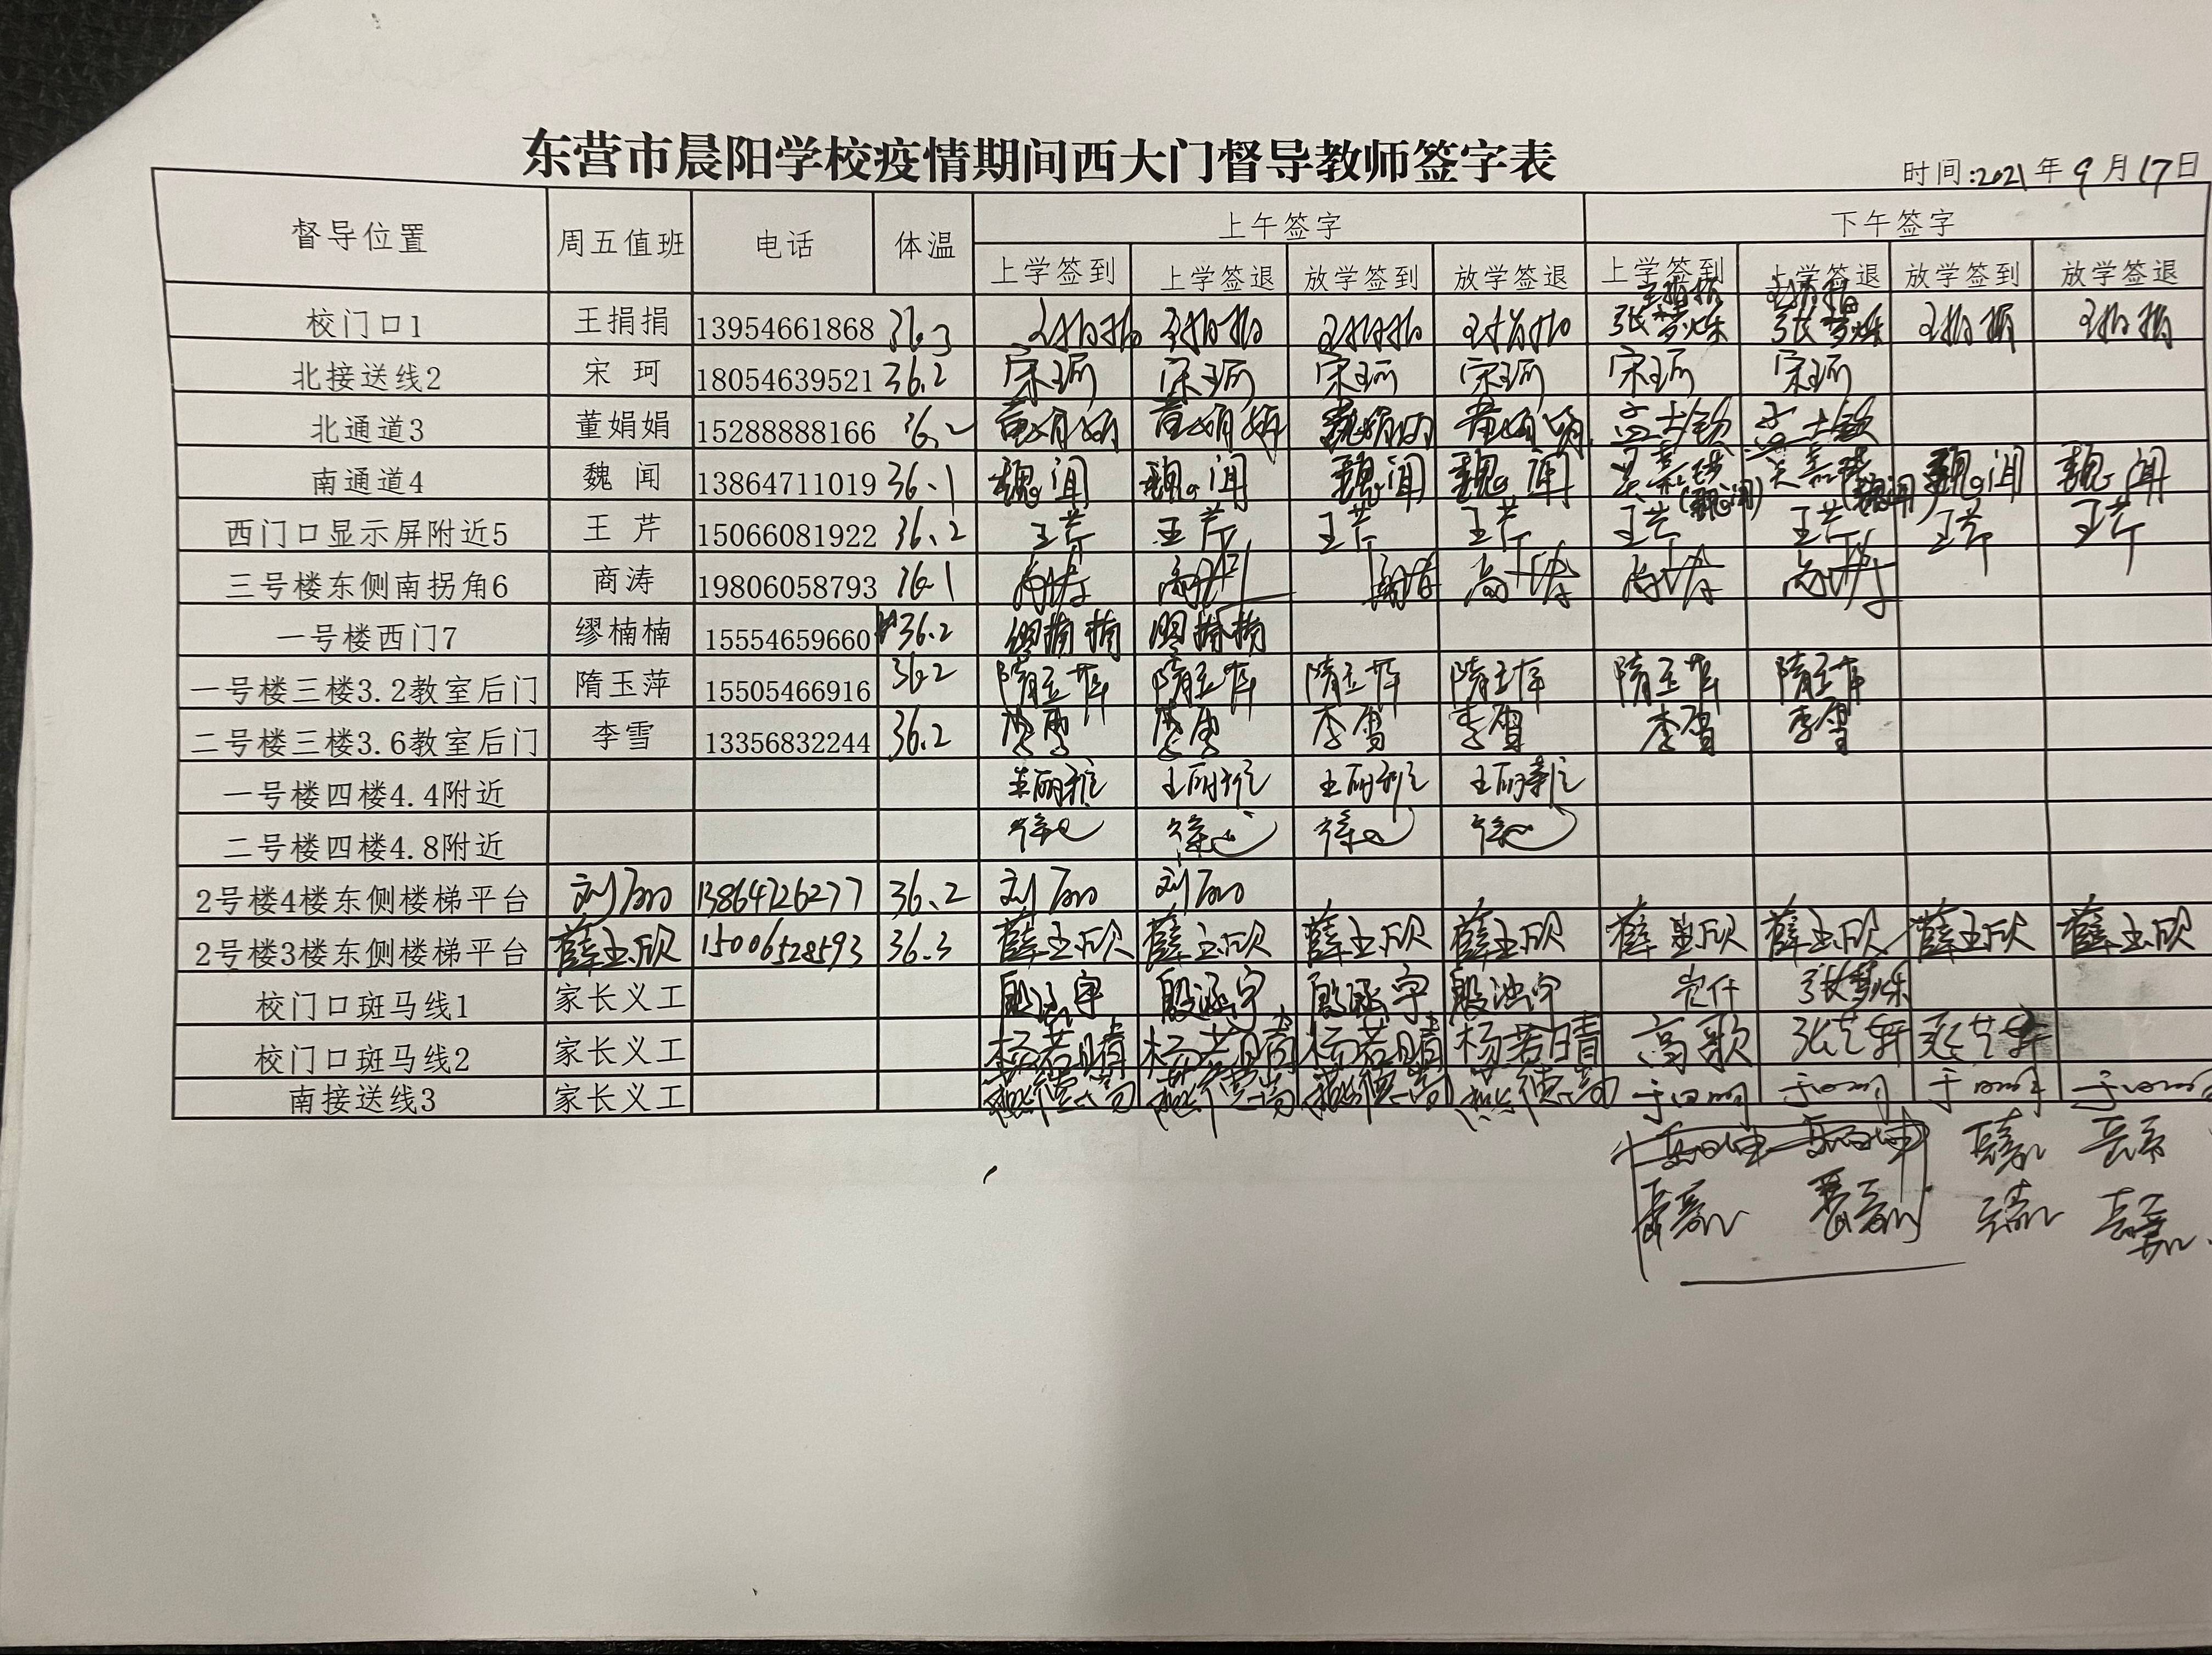 东营市晨阳学校疫情期间西大门督导教师签字表
时间:2021年9月17日
督导位置 周五值班 电话 体温 上午签字 下午签字
上学签到 上学签退 放学签到 放学签退 上学签到 上学签退 放学签到 放学签退
校门口1 王捐捐 13954661868 36.3 王捐捐 王捐捐 王捐捐 王捐捐 王捐捐 王捐捐 王捐捐 王捐捐
北接送线2 宋珂 18054639521 36.2 宋珂 宋珂 宋珂 宋珂 宋珂 宋珂
北通道3 董娟娟 15288888166 36.2 董娟娟 董娟娟 董娟娟 董娟娟
南通道4 魏闻 13864711019 36.1 魏闻 魏闻 魏闻 魏闻 (魏闻) (魏闻) 魏闻 魏闻
西门口显示屏附近5 王芹 15066081922 36.2 王芹 王芹 王芹 王芹 王芹 王芹 王芹 王芹
三号楼东侧南拐角6 商涛 19806058793 36.1 商涛 商涛 商涛 商涛 商涛 商涛
一号楼西门7 缪楠楠 15554659660 36.2 缪楠楠 缪楠楠
一号楼三楼3.2教室后门 隋玉萍 15505466916 36.2 隋玉萍 隋玉萍 隋玉萍 隋玉萍 隋玉萍 隋玉萍
二号楼三楼3.6教室后门 李雪 13356832244 36.2 李雪 李雪 李雪 李雪 李雪 李雪
一号楼四楼4.4附近
二号楼四楼4.8附近
2号楼4楼东侧楼梯平台 刘 13864726277 36.2 刘 刘
2号楼3楼东侧楼梯平台 薛玉欣 15006528593 36.3 薛玉欣 薛玉欣 薛玉欣 薛玉欣 薛玉欣 薛玉欣 薛玉欣 薛玉欣
校门口斑马线1 家长义工
校门口斑马线2 家长义工 杨若晴 杨若晴 杨若晴 杨若晴 高歌 张艺轩 张艺轩
南接送线3 家长义工